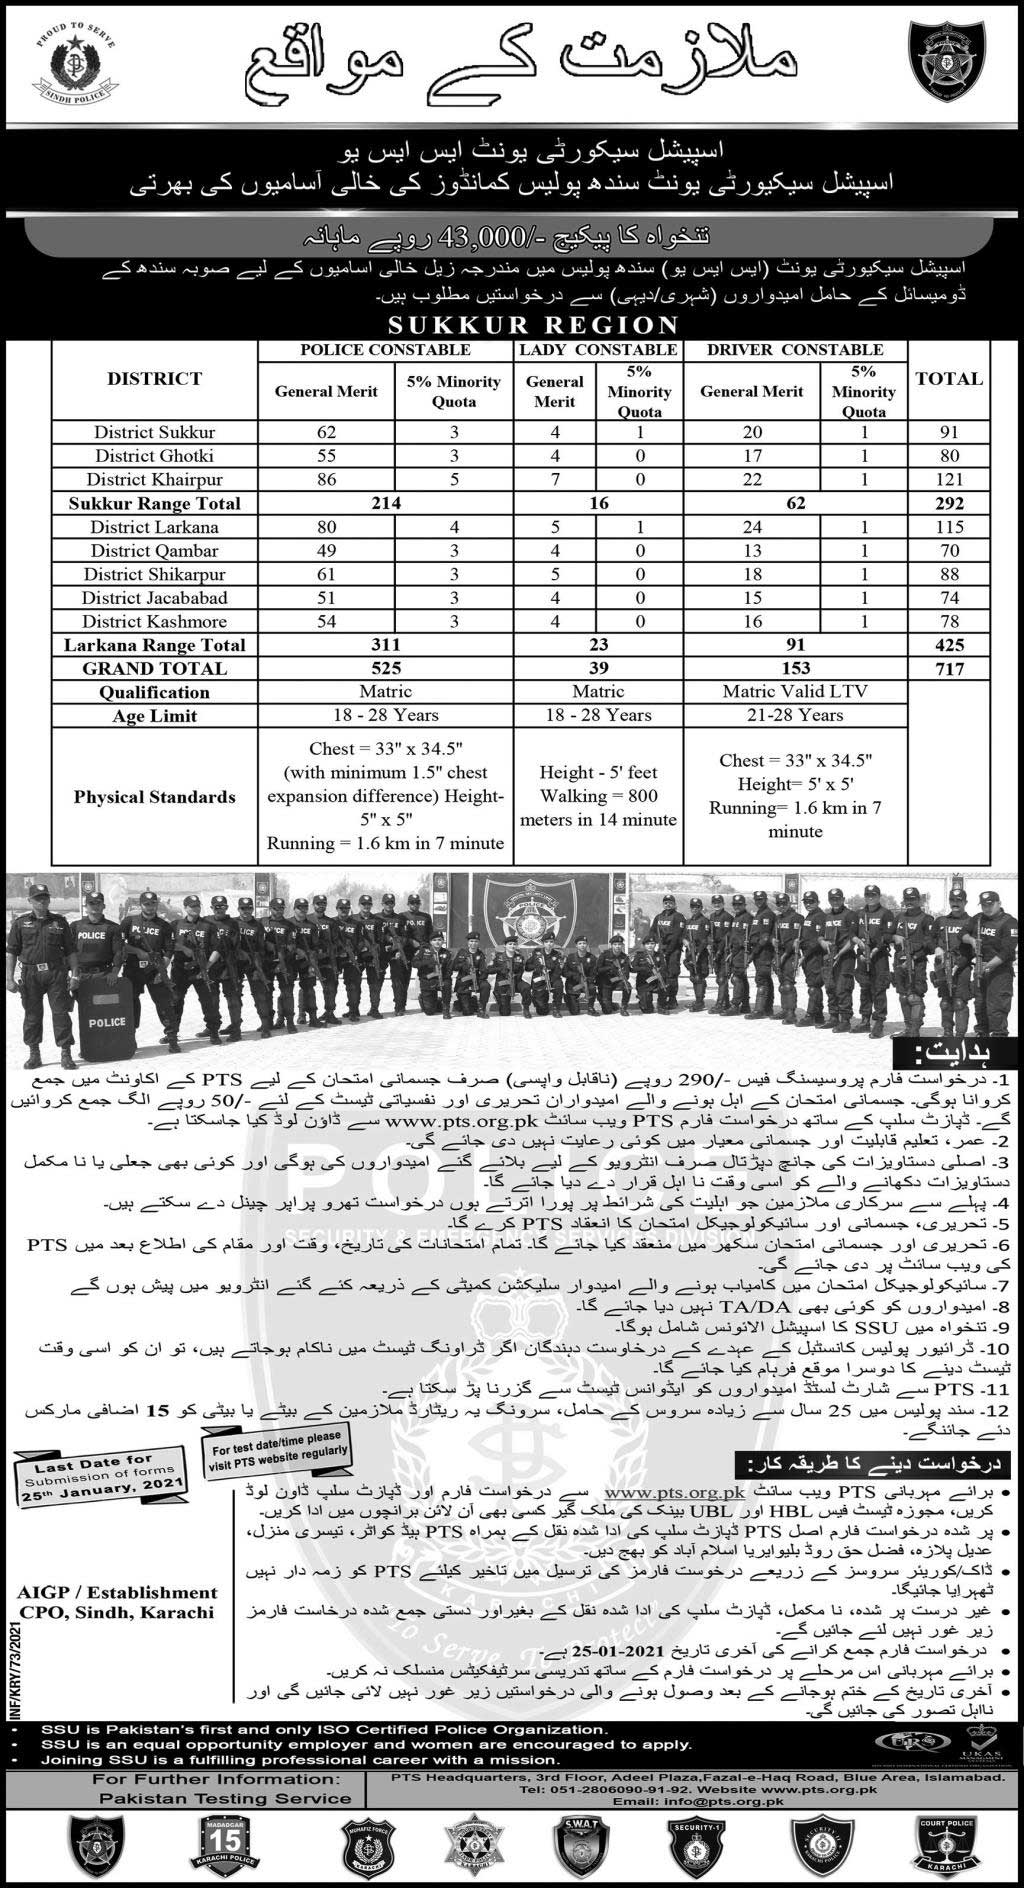 PROUD TO SERVE
SINDH POLICE
ملازمت کے مواقع
اسپیشل سیکورٹی یونٹ ایس ایس یو
اسپیشل سیکیورٹی یونٹ سندھ پولیس کمانڈوز کی خالی آسامیوں کی بھرتی
تنخواہ کا پیکیج -/43,000 روپے ماہانہ
اسپیشل سیکیورٹی یونٹ (ایس ایس یو) سندھ پولیس میں مندرجہ زیل خالی اسامیوں کے لیے صوبہ سندھ کے
ڈومیسائل کے حامل امیدواروں (شہری/دیہی) سے درخواستیں مطلوب ہیں۔
SUKKUR REGION
DISTRICT POLICE CONSTABLE LADY CONSTABLE DRIVER CONSTABLE TOTAL
General Merit 5% Minority Quota General Merit 5% Minority Quota General Merit 5% Minority Quota
District Sukkur 62 3 4 1 20 1 91
District Ghotki 55 3 4 0 17 1 80
District Khairpur 86 5 7 0 22 1 121
Sukkur Range Total 214 16 62 292
District Larkana 80 4 5 1 24 1 115
District Qambar 49 3 4 0 13 1 70
District Shikarpur 61 3 5 0 18 1 88
District Jacababad 51 3 4 0 15 1 74
District Kashmore 54 3 4 0 16 1 78
Larkana Range Total 311 23 91 425
GRAND TOTAL 525 39 153 717
Qualification Matric Matric Matric Valid LTV
Age Limit 18 - 28 Years 18 - 28 Years 21-28 Years
Physical Standards
Chest = 33" x 34.5"
(with minimum 1.5" chest
expansion difference) Height-
5" x 5"
Running = 1.6 km in 7 minute
Height - 5' feet
Walking = 800
meters in 14 minute
Chest = 33" x 34.5"
Height= 5' x 5'
Running= 1.6 km in 7
minute
POLICE
POLICE
ہدایت:
1- درخواست فارم پروسیسنگ فیس -/290 روپے (ناقابل واپسی) صرف جسمانی امتحان کے لیے PTS کے اکاونٹ میں جمع
کروانا ہوگی۔ جسمانی امتحان کے اہل ہونے والے امیدواران تحریری اور نفسیاتی ٹیسٹ کے لئے -/50 روپے الگ جمع کروائیں
گے۔ ڈپازٹ سلپ کے ساتھ درخواست فارم PTS ویب سائٹ www.pts.org.pk سے ڈاون لوڈ کیا جاسکتا ہے۔
2- عمر، تعلیم قابلیت اور جسمانی معیار میں کوئی رعایت نہیں دی جائے گی۔
3- اصلی دستاویزات کی جانچ پڑتال صرف انٹرویو کے لیے بلائے گئے امیدواروں کی ہوگی اور کوئی بھی جعلی یا نا مکمل
دستاویزات دکھانے والے کو اسی وقت نا اہل قرار دے دیا جائے گا۔
4- پہلے سے سرکاری ملازمین جو اہلیت کی شرائط پر پورا اترتے ہوں درخواست تھرو پراپر چینل دے سکتے ہیں۔
5- تحریری، جسمانی اور سائیکولوجیکل امتحان کا انعقاد PTS کرے گا۔
6- تحریری اور جسمانی امتحان سکھر میں منعقد کیا جائے گا۔ تمام امتحانات کی تاریخ، وقت اور مقام کی اطلاع بعد میں PTS
کی ویب سائٹ پر دی جائے گی۔
7- سائیکولوجیکل امتحان میں کامیاب ہونے والے امیدوار سلیکشن کمیٹی کے ذریعہ کئے گئے انٹرویو میں پیش ہوں گے
8- امیدواروں کو کوئی بھی TA/DA نہیں دیا جائے گا۔
9- تنخواہ میں SSU کا اسپیشل الاونس شامل ہوگا۔
10- ڈرائیور پولیس کانسٹبل کے عہدے کے درخاوست دہندگان اگر ڈراونگ ٹیسٹ میں ناکام ہوجاتے ہیں، تو ان کو اسی وقت
ٹیسٹ دینے کا دوسرا موقع فرہام کیا جائے گا۔
11- PTS سے شارٹ لسٹڈ امیدواروں کو ایڈوانس ٹیسٹ سے گزرنا پڑ سکتا ہے۔
12- سند پولیس میں 25 سال سے زیادہ سروس کے حامل، سرونگ یہ ریٹارڈ ملازمین کے بیٹے یا بیٹی کو 15 اضافی مارکس
دئے جائنگے۔
POLICE
SECURITY & EMERGENCY SERVICES DIVISION
KARACHI
To Serve, To Protect
Last Date for
Submission of forms
25th January, 2021
For test date/time please
visit PTS website regularly
درخواست دینے کا طریقہ کار:
• برائے مہربانی PTS ویب سائٹ www.pts.org.pk سے درخواست فارم اور ڈپازٹ سلپ ڈاون لوڈ
کریں، مجوزہ ٹیسٹ فیس HBL اور UBL بینک کی ملک گیر کسی بھی آن لائن برانچوں میں ادا کریں۔
• پر شدہ درخواست فارم اصل PTS ڈپازٹ سلپ کی ادا شدہ نقل کے ہمراہ PTS ہیڈ کواٹر، تیسری منزل،
عدیل پلازہ، فضل حق روڈ بلیوایریا اسلام آباد کو بھج دیں۔
• ڈاک/کوریئر سروسز کے زریعے درخوست فارمز کی ترسیل میں تاخیر کیلئے PTS کو زمہ دار نہیں
ٹھہرایا جائیگا۔
• غیر درست پر شدہ، نا مکمل، ڈپازٹ سلپ کی ادا شدہ نقل کے بغیراور دستی جمع شدہ درخاست فارمز
زیر غور نہیں لئے جائیں گے۔
• درخواست فارم جمع کرانے کی آخری تاریخ 25-01-2021 ہے۔
• برائے مہربانی اس مرحلے پر درخواست فارم کے ساتھ تدریسی سرٹیفکیٹس منسلک نہ کریں۔
• آخری تاریخ کے ختم ہوجانے کے بعد وصول ہونے والی درخواستیں زیر غور نہیں لائی جائیں گی اور
نااہل تصور کی جائیں گی۔
AIGP / Establishment
CPO, Sindh, Karachi
INF/KRY/73/2021
• SSU is Pakistan's first and only ISO Certified Police Organization.
• SSU is an equal opportunity employer and women are encouraged to apply.
• Joining SSU is a fulfilling professional career with a mission.
URS
UKAS
MANAGEMENT
For Further Information:
Pakistan Testing Service
PTS Headquarters, 3rd Floor, Adeel Plaza,Fazal-e-Haq Road, Blue Area, Islamabad.
Tel: 051-2806090-91-92. Website www.pts.org.pk
Email: info@pts.org.pk
MADADGAR
15
KARACHI POLICE
MUHAFIZ FORCE
KARACHI
S.W.A.T
SECURITY-1
KARACHI
COURT POLICE
KARACHI